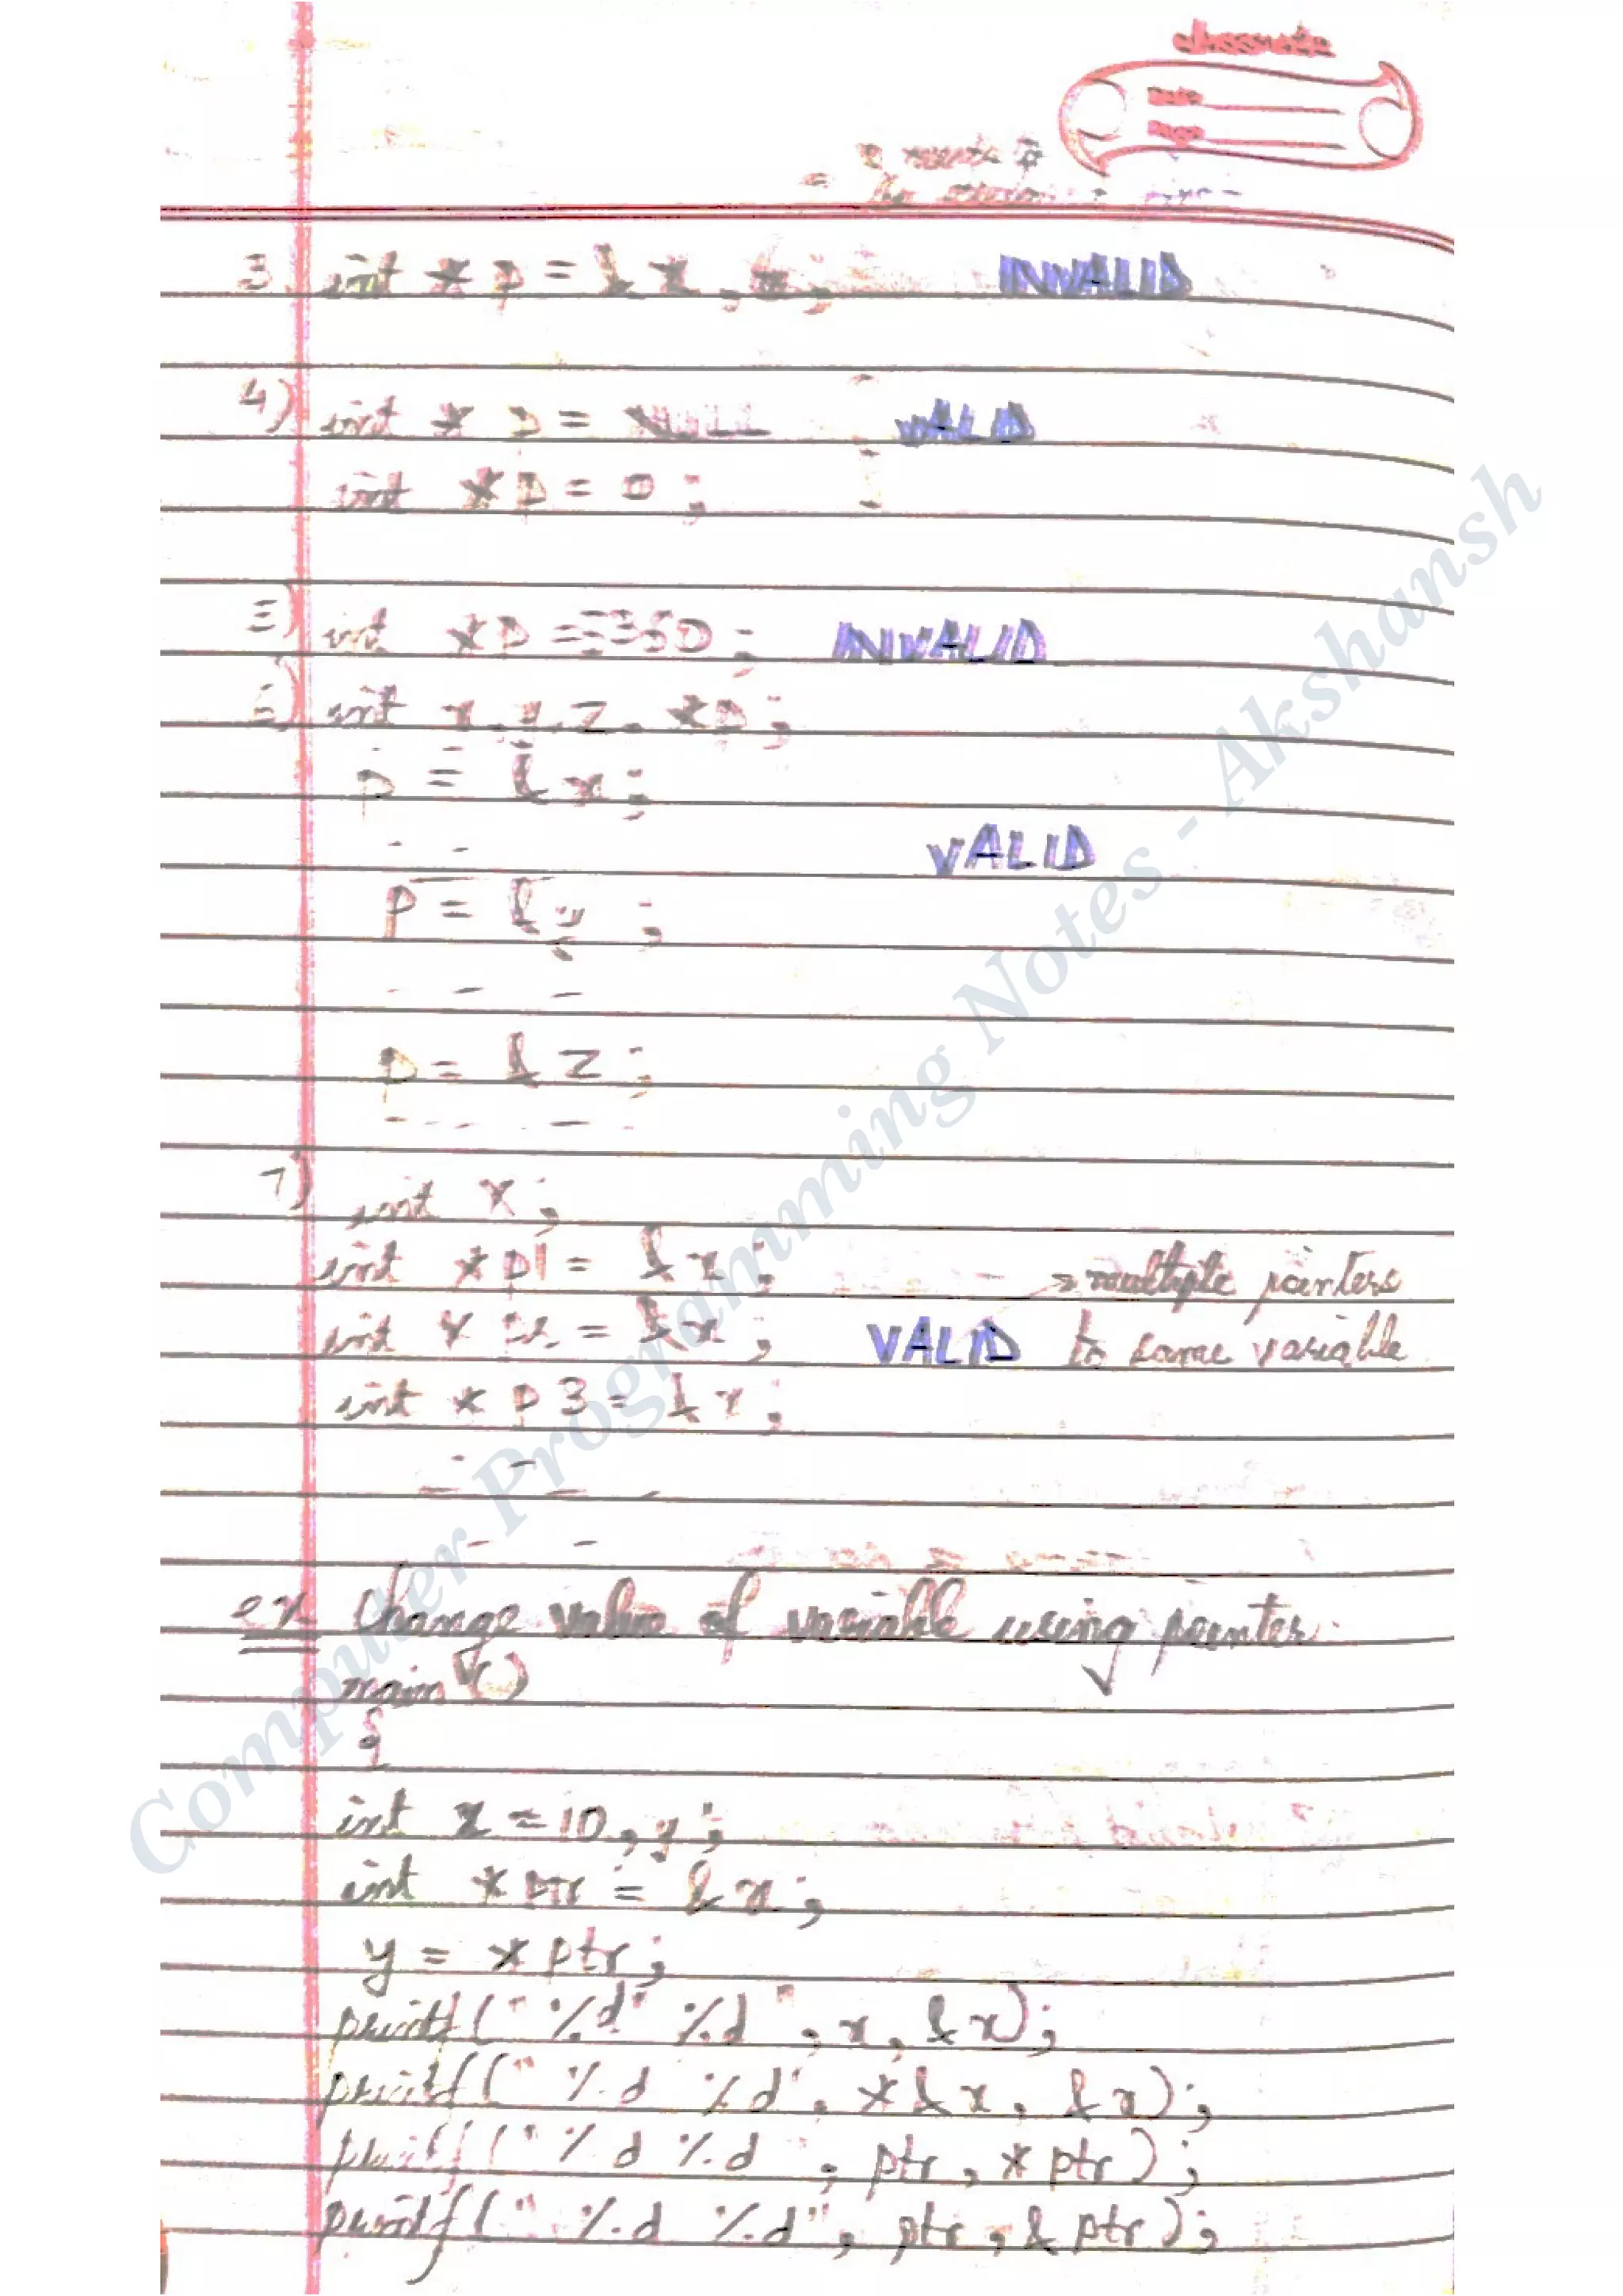 classmate
Date
Page
3 int * p = & x, x; INVALID
4) int * p = NULL VALID
int *p = 0 ;
5) int *p = 5350 ; INVALID
6) int x, y, z, *p ;
p = & x ;
VALID
p = & y ;
p = & z ;
7) int x ;
int *p1 = & x ; → multiple pointers
int * p2 = & x ; VALID to same variable
int * p 3 = & x ;
ex Change value of variable using pointer
main ()
{
int x = 10 , y ;
int * ptr = & x ;
y = * ptr ;
printf (" %d %d " , x , &x) ;
printf (" %d %d" , *&x , &x) ;
printf (" %d %d " , ptr , * ptr ) ;
printf (" %d %d" , ptr , & ptr ) ;
Computer Programming Notes - Akshansh